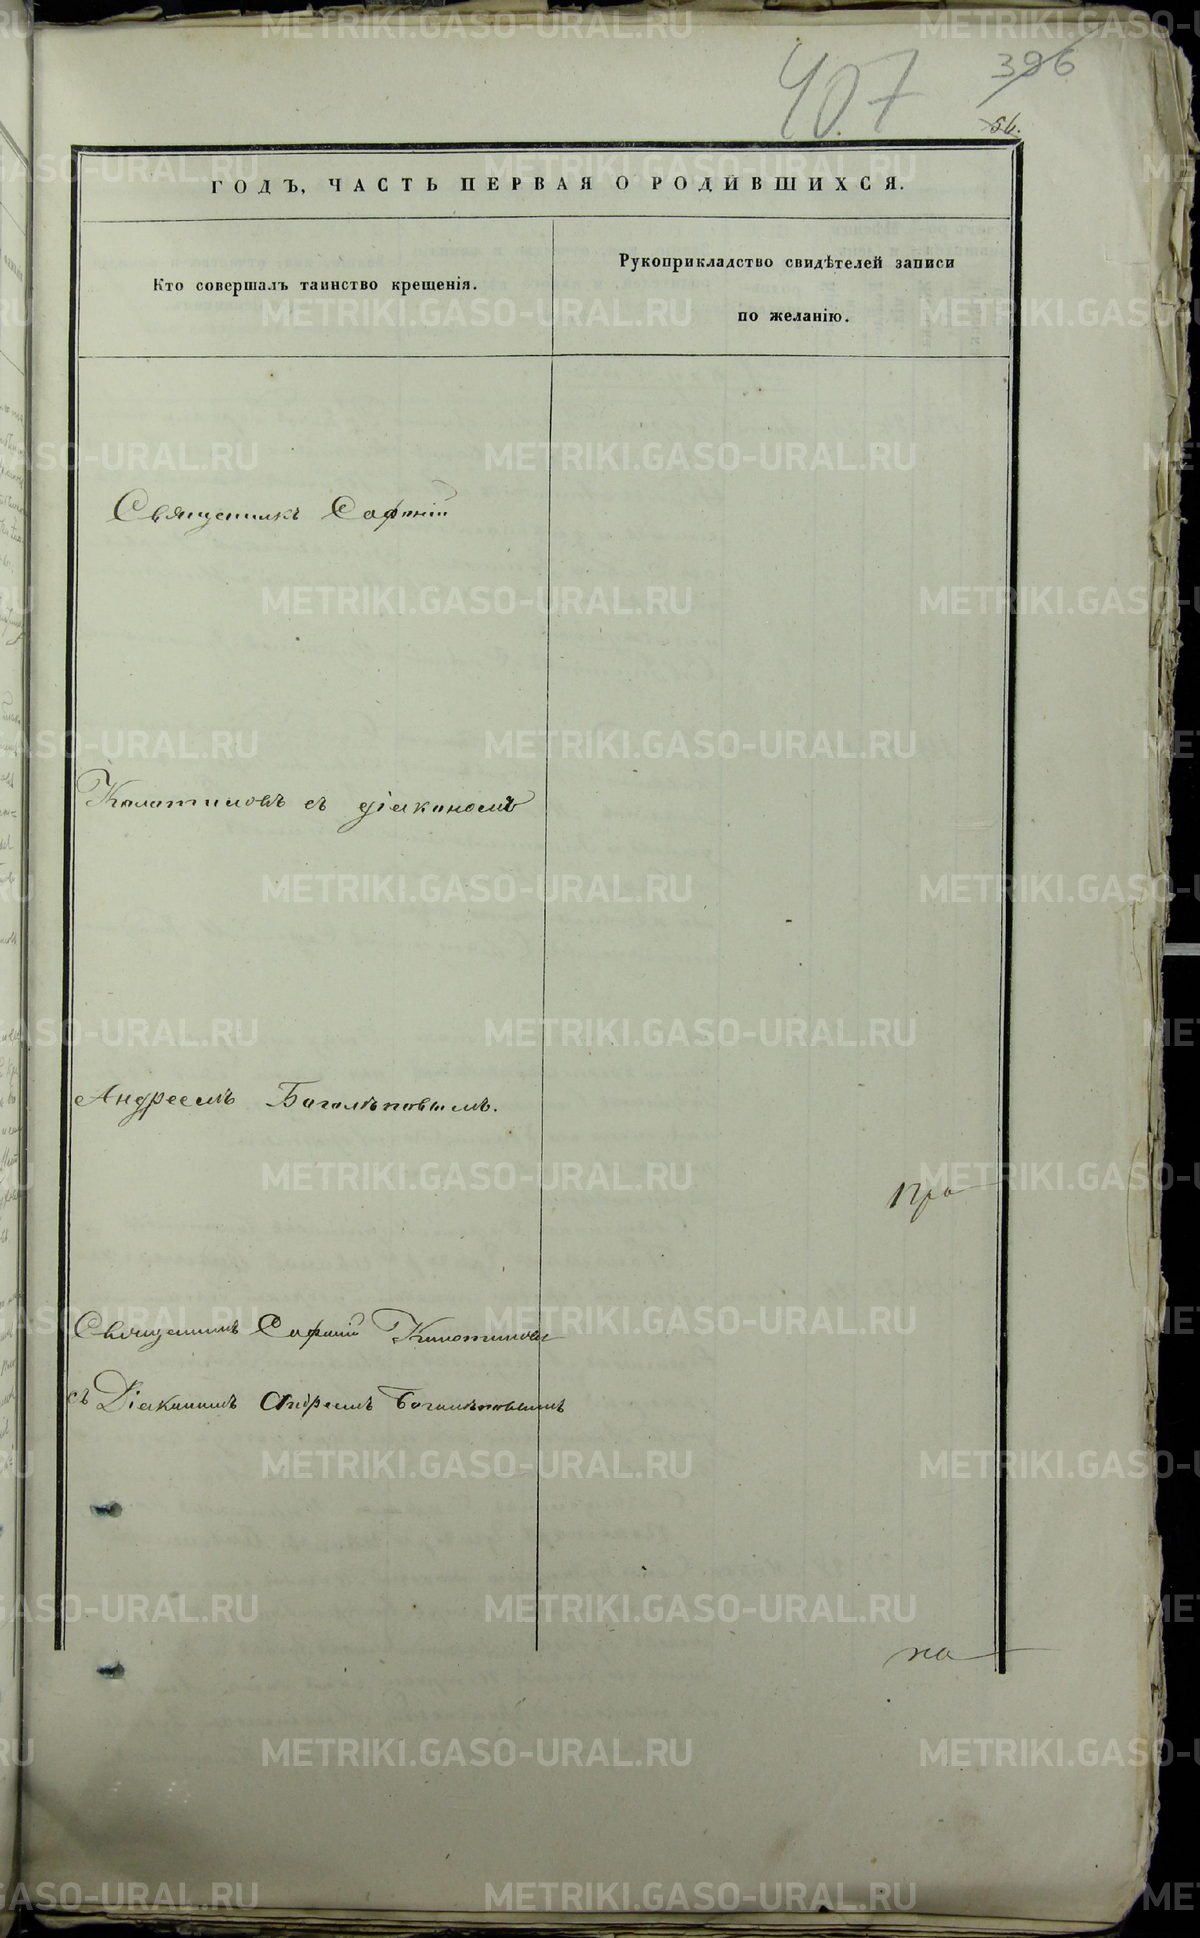 407
396
56.
ГОДЪ, ЧАСТЬ ПЕРВАЯ О РОДИВШИХСЯ.
Кто совершалъ таинство крещенія.
Рукоприкладство свидѣтелей записи
по желанію.
Священникъ Софоній
Колотиловъ съ діакономъ
Андреемъ Боголѣповымъ.
Про
Священникъ Софоній Колотиловъ
съ Діакономъ Андреемъ Боголѣповымъ
на
METRIKI.GASO-URAL.RU